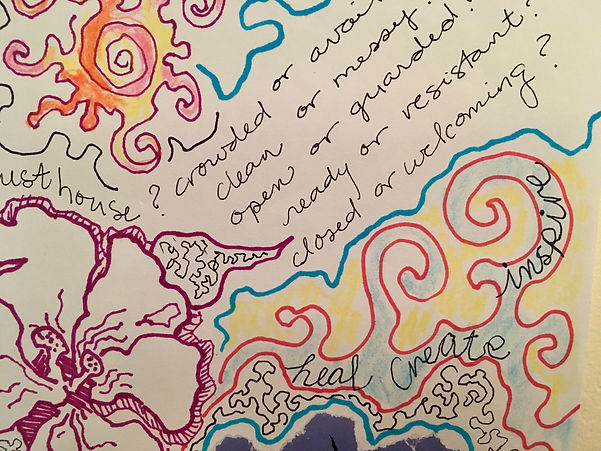 ? crowded or avai
clean or messy?
open or guarded?
ready or resistant?
closed or welcoming?
usthouse
inspire
heal create